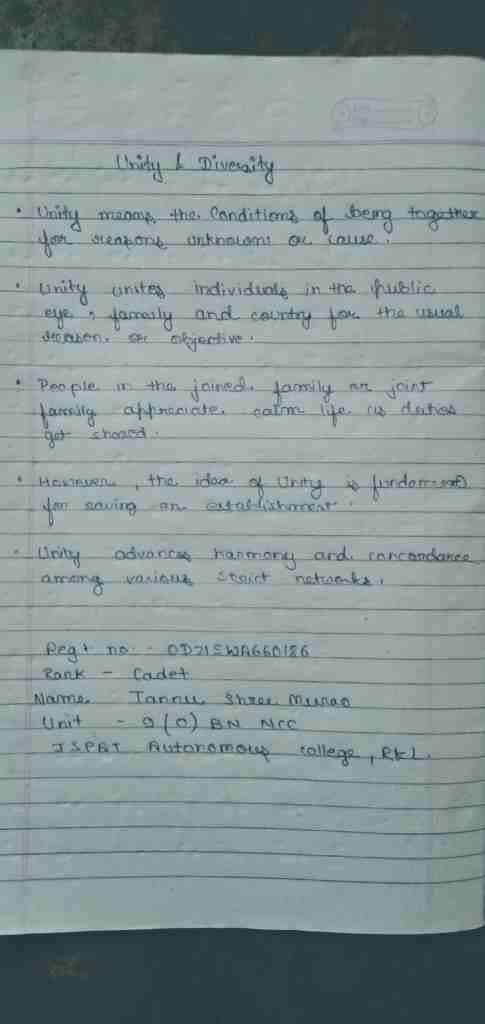 Unity & Diversity
• Unity means the Conditions of being together
for reasons unknown or cause.
• Unity unites individuals in the public
eye, family and country for the usual
reason or objective.
• People in the joined family or joint
family appreciate calm life as duties
get shared.
• However, the idea of Unity is fundamental
for saving an establishment.
• Unity advances harmony and concordance
among various strict networks.
Regt no. - OD21SWA660186
Rank - Cadet
Name Tannu Shree Munao
Unit - 9 (O) BN NCC
ISPAT Autonomous college, RKL.